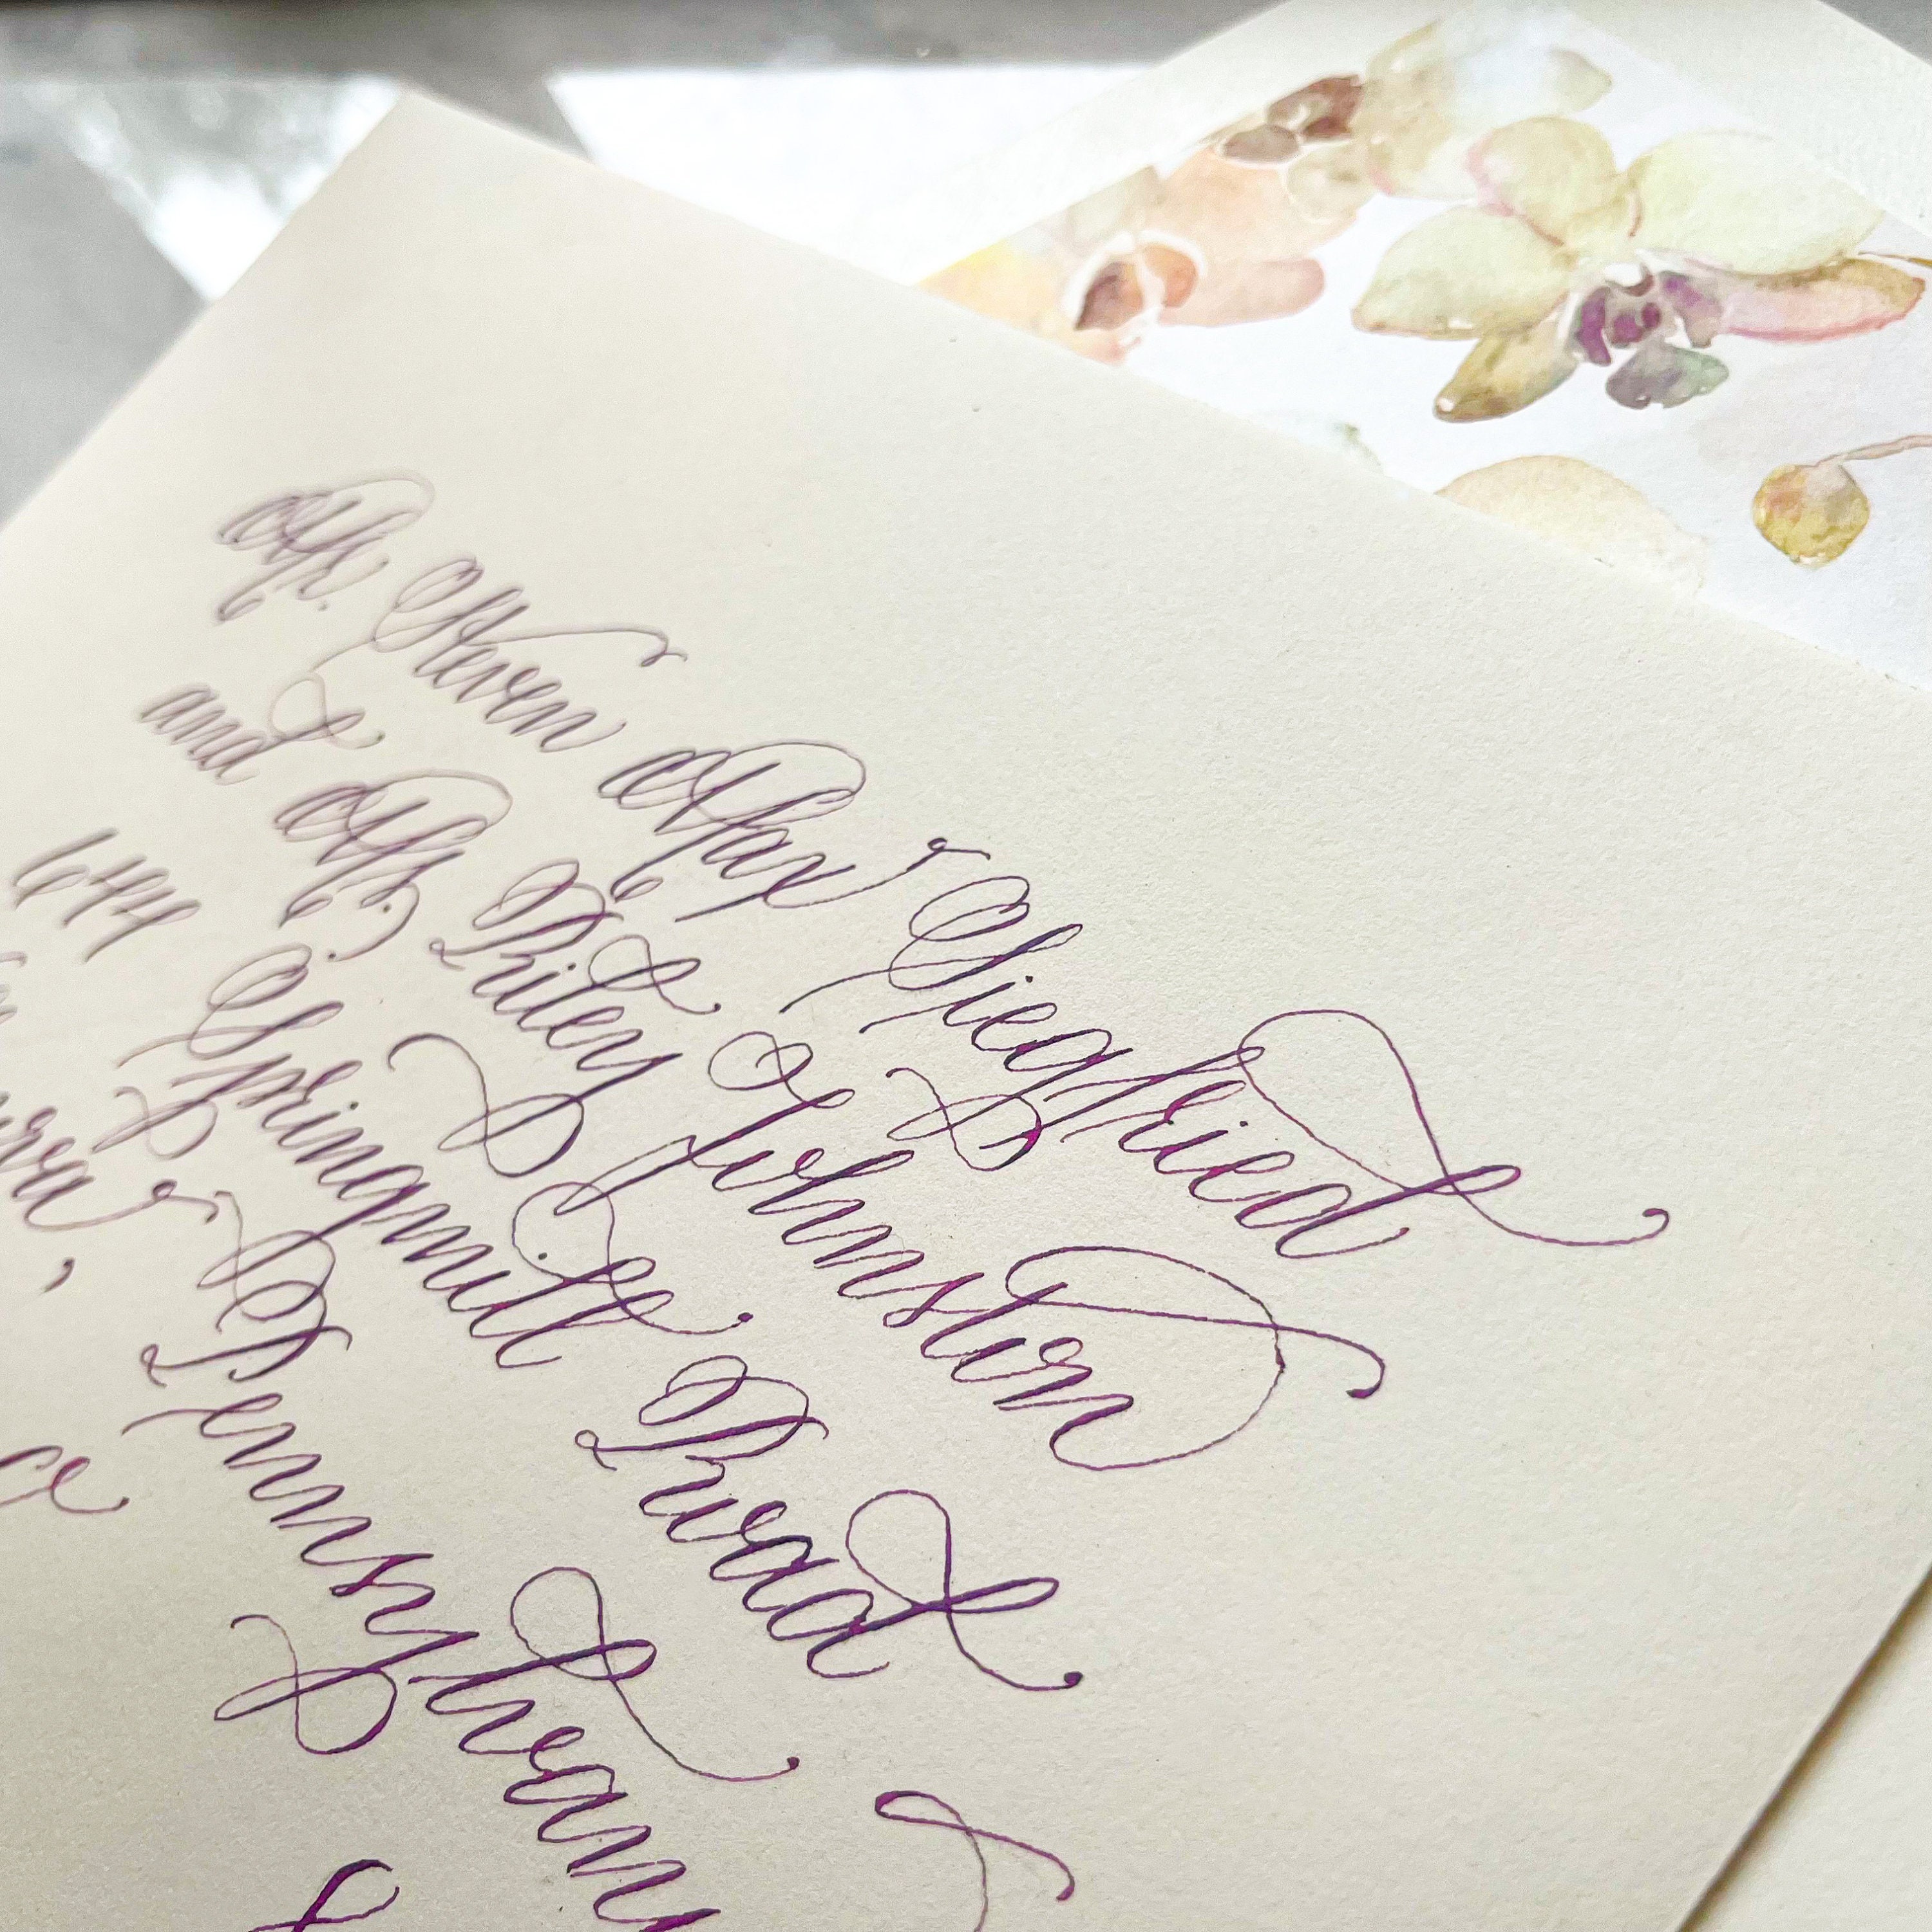 Mr. Steven Max Siegfried
and Ms. Riley Johnston
644 Springmill Road
, Pennsylvan